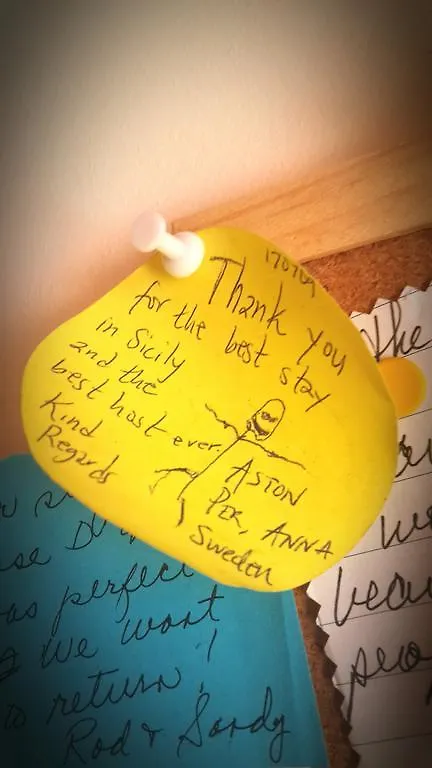 170709
Thank you
for the best stay
in Sicily
and the
best host ever.
Kind
Regards
ASTON
PER, ANNA
Sweden
perfect
we want
to return!
Rod & Sandy
the